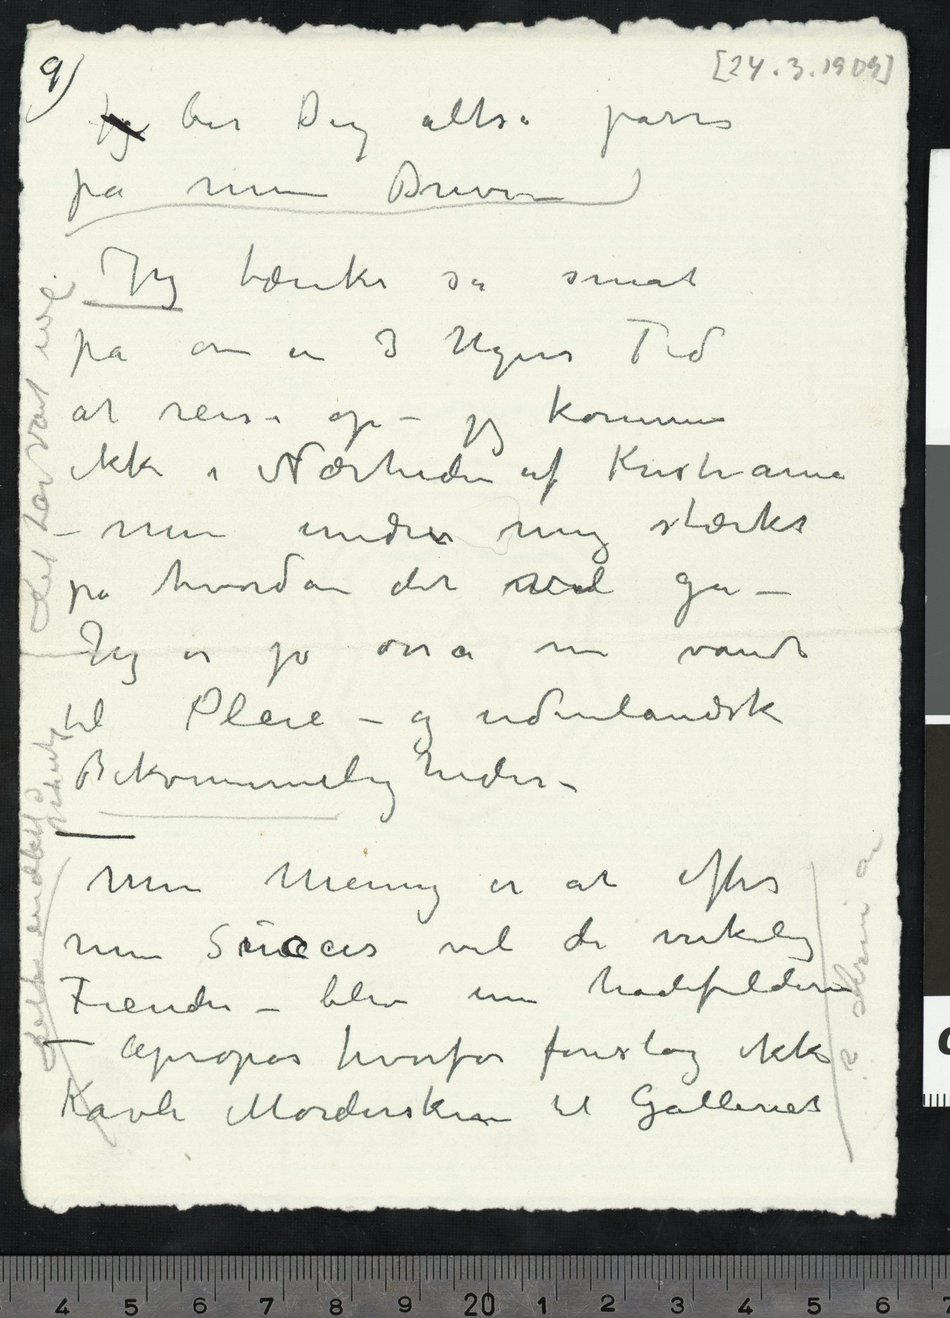 9)
[24.3.1909]
Jeg ber Dig altså passe
på mine Breve
Jeg tænker så småt
på om en 3 Ugers Tid
at reise op – jeg kommer
ikke i Nærheden af Kristiania
– men undrer mig stærkt
på hvordan det vil gå –
Jeg er jo osså nu vandt
til Pleie – og udenlandsk
Bekvemmeligheder –
Min Mening er at efter
min Succes vil de virkelig
Fiender – blive mere hadefuldere
– Apropos hvorfor foreslog ikke
Kavli Mordersken til Galleriet
Det har vært
Dette endelig
skrive om